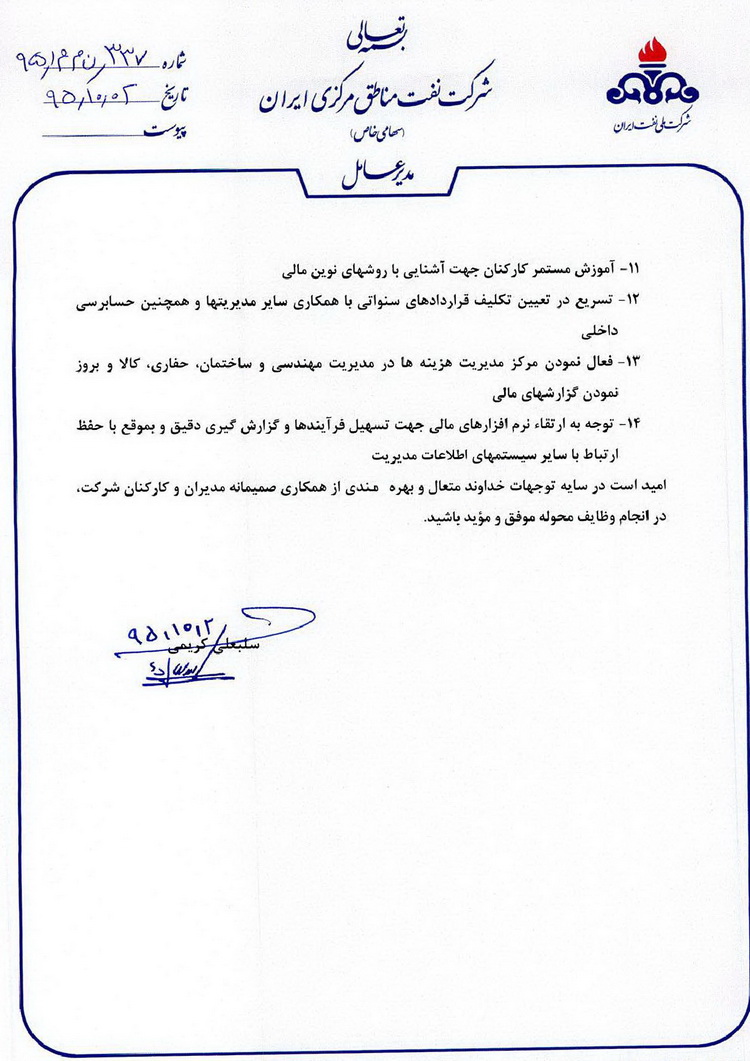 بسمه تعالی
شرکت نفت مناطق مرکزی ایران
(سهامی خاص)
مدیرعامل
شرکت ملی نفت ایران
شماره ۳۳۷
تاریخ ۹۵,۱۰,۰۲
پیوست
۱۱- آموزش مستمر کارکنان جهت آشنایی با روشهای نوین مالی
۱۲- تسریع در تعیین تکلیف قراردادهای سنواتی با همکاری سایر مدیریتها و همچنین حسابرسی
داخلی
۱۳- فعال نمودن مرکز مدیریت هزینه ها در مدیریت مهندسی و ساختمان، حفاری، کالا و بروز
نمودن گزارشهای مالی
۱۴- توجه به ارتقاء نرم افزارهای مالی جهت تسهیل فرآیندها و گزارش گیری دقیق و بموقع با حفظ
ارتباط با سایر سیستمهای اطلاعات مدیریت
امید است در سایه توجهات خداوند متعال و بهره مندی از همکاری صمیمانه مدیران و کارکنان شرکت،
در انجام وظایف محوله موفق و مؤید باشید.
۹۵,۱۰,۲
سلبعلی کریمی